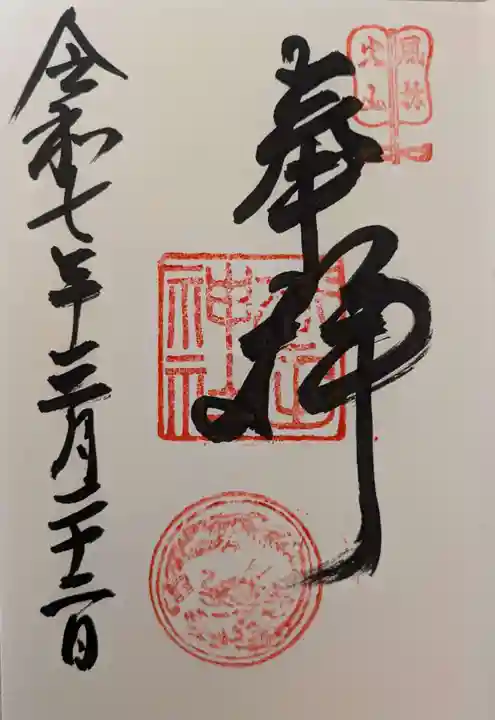 風林
火山
奉拝
神社
令和七年三月二十二日